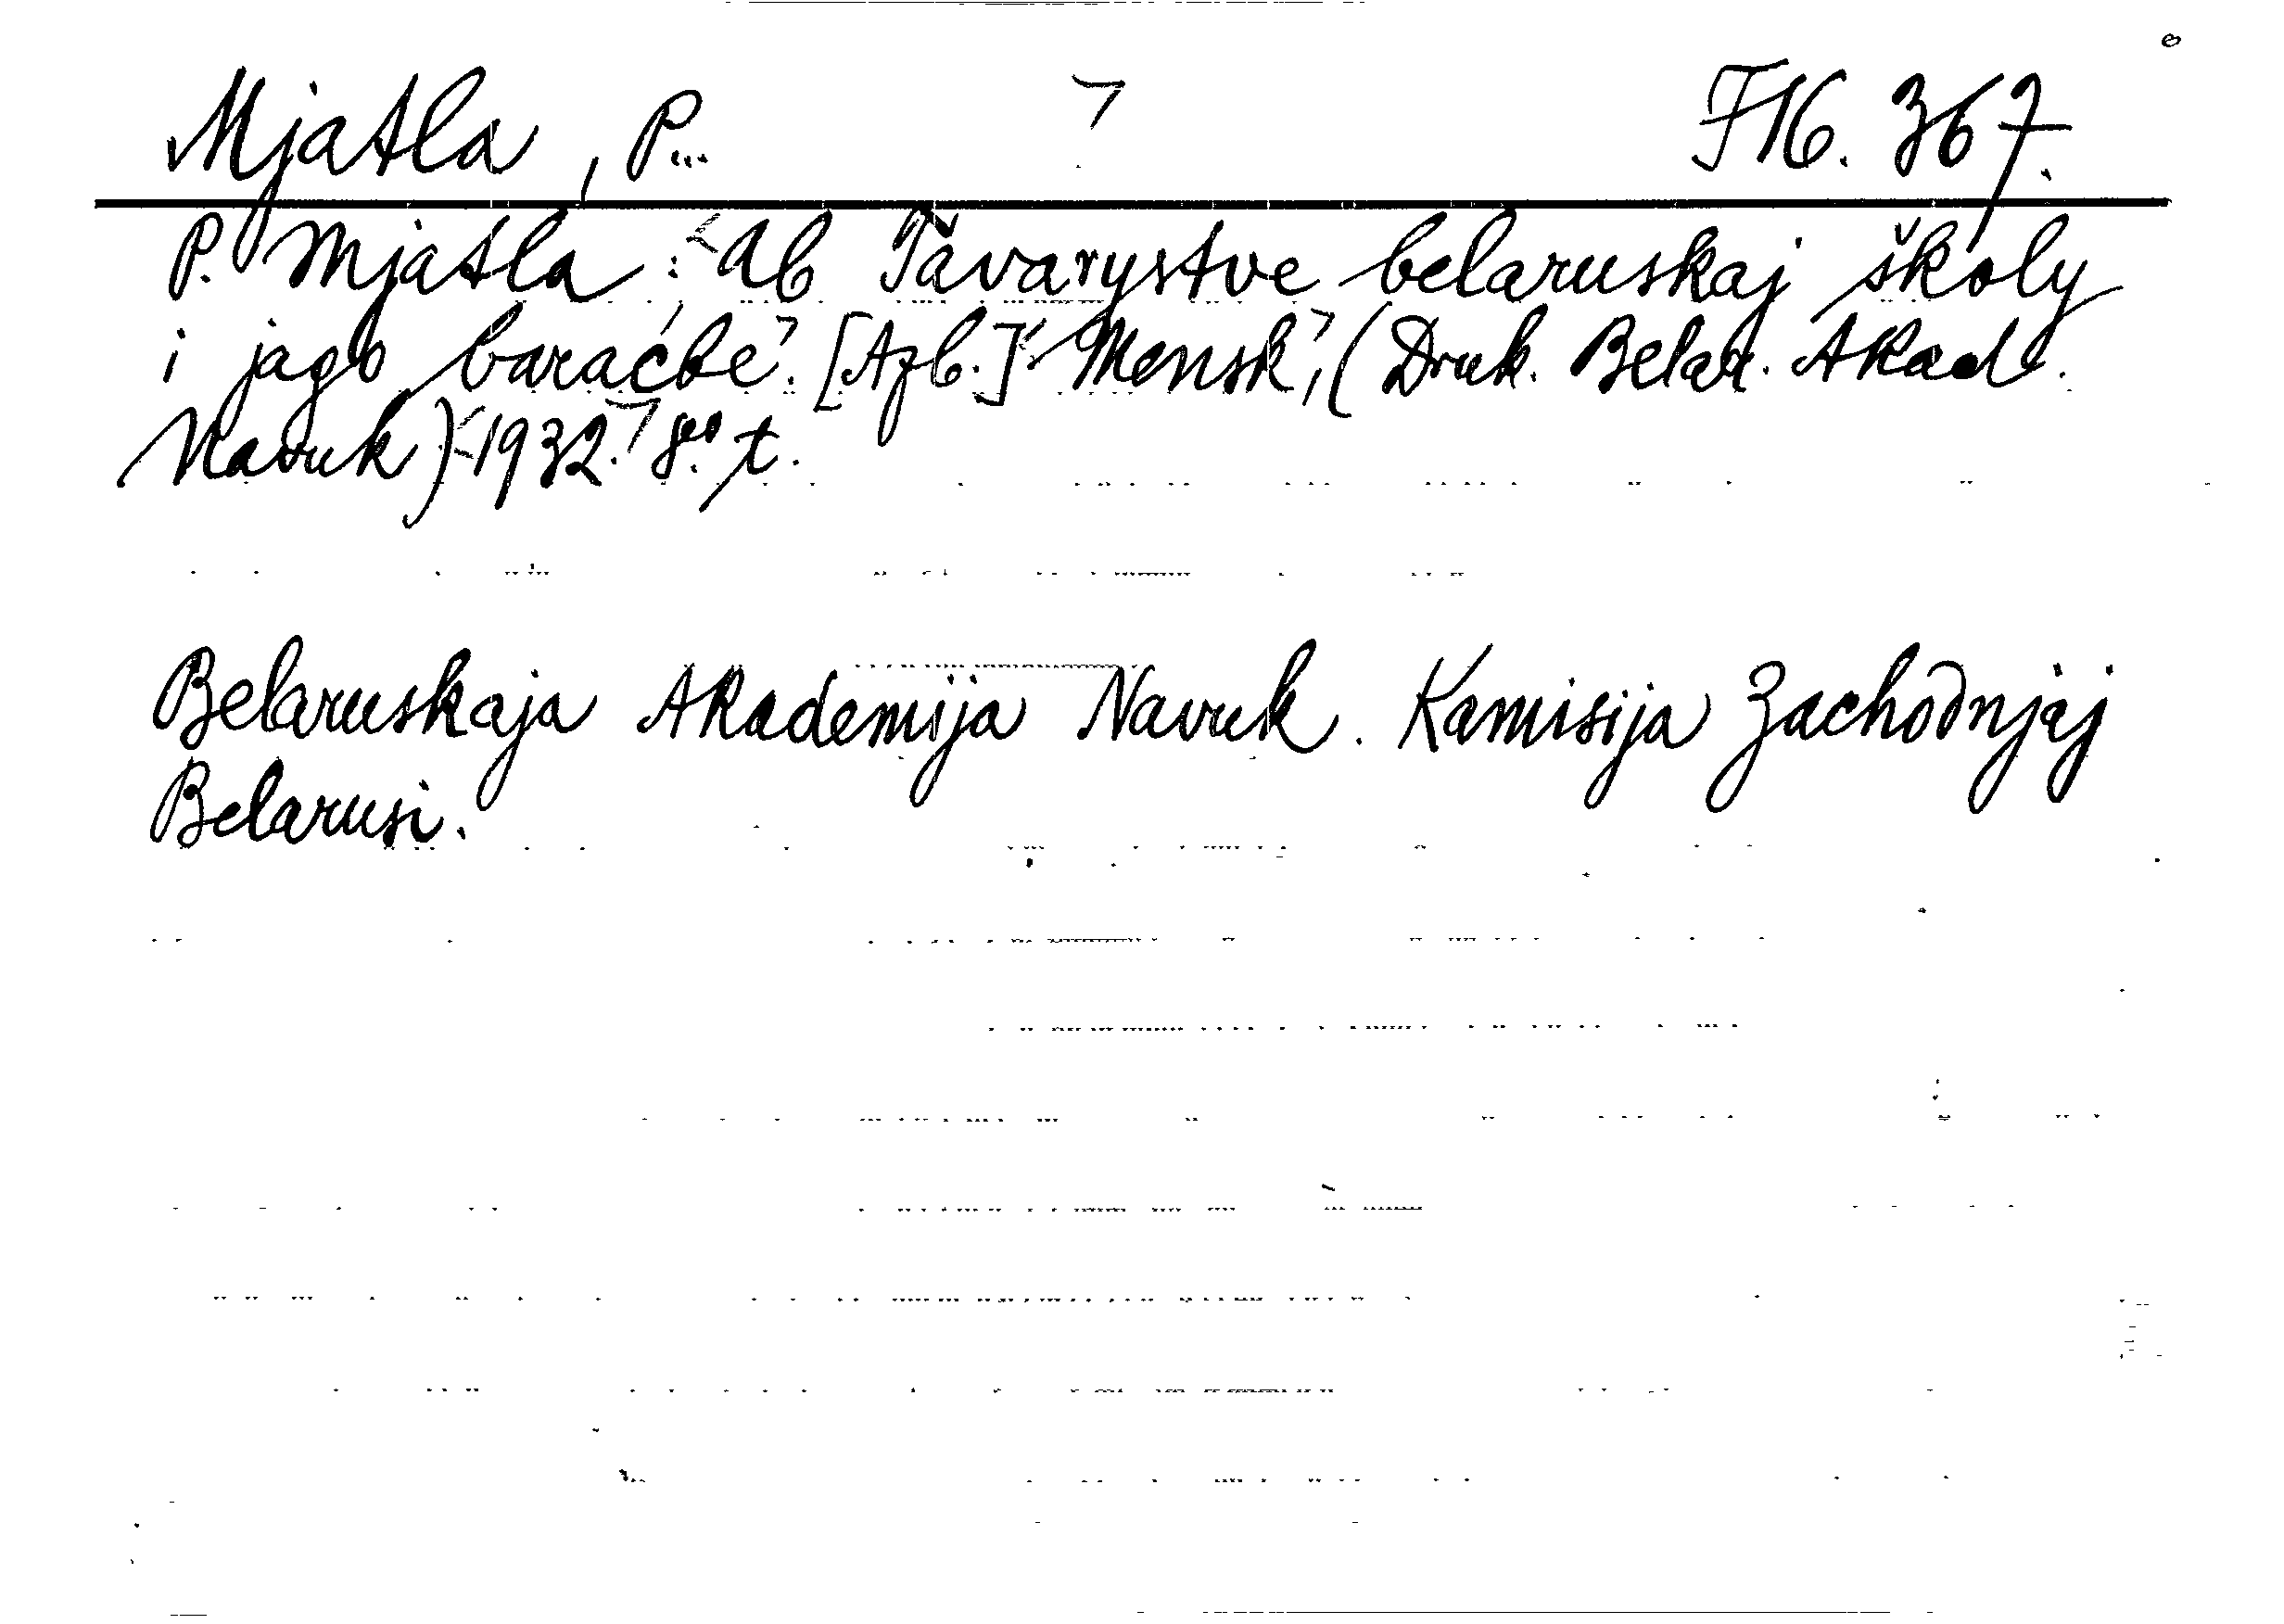 Mjatla, P... F16. 367.
P. Mjatla: Ab Tavarystve belaruskaj školy
i jago baraćbe. [Azb.] Mensk, (Druk. Belar. Akad.
Navuk) 1932. 8vo. t.
Belaruskaja Akademija Navuk. Kamisija Zachodnjaj
Belarusi.